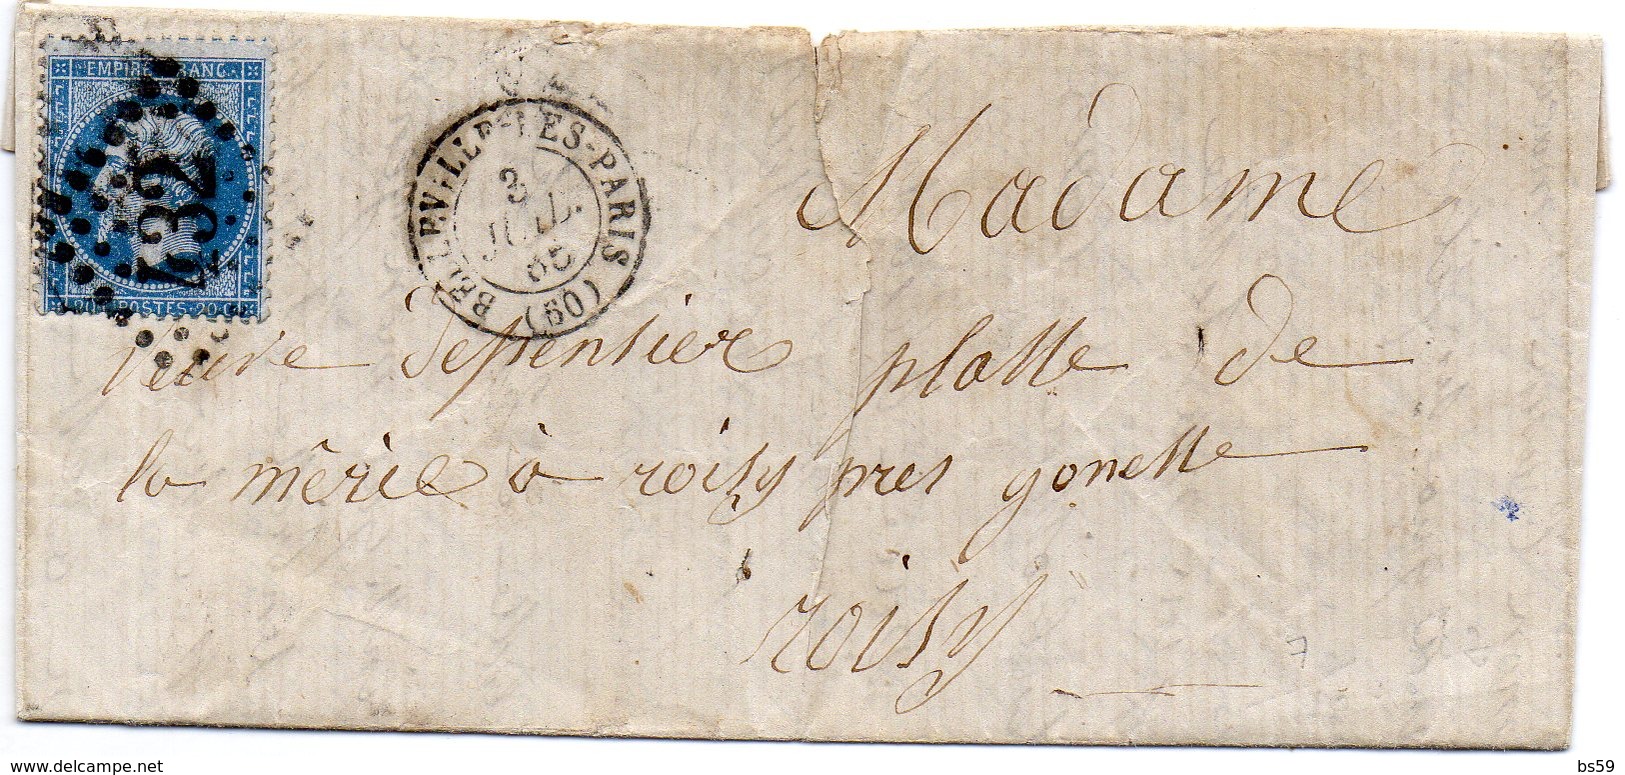 EMPIRE FRANC
432
20 POSTES 20 C
BELLEVILLE-LES-PARIS (60)
3
JUIL.
65
Madame
Veuve depensier platte de
la mêrie à roisy pres gonesse
roisy
7
www.delcampe.net
bs59